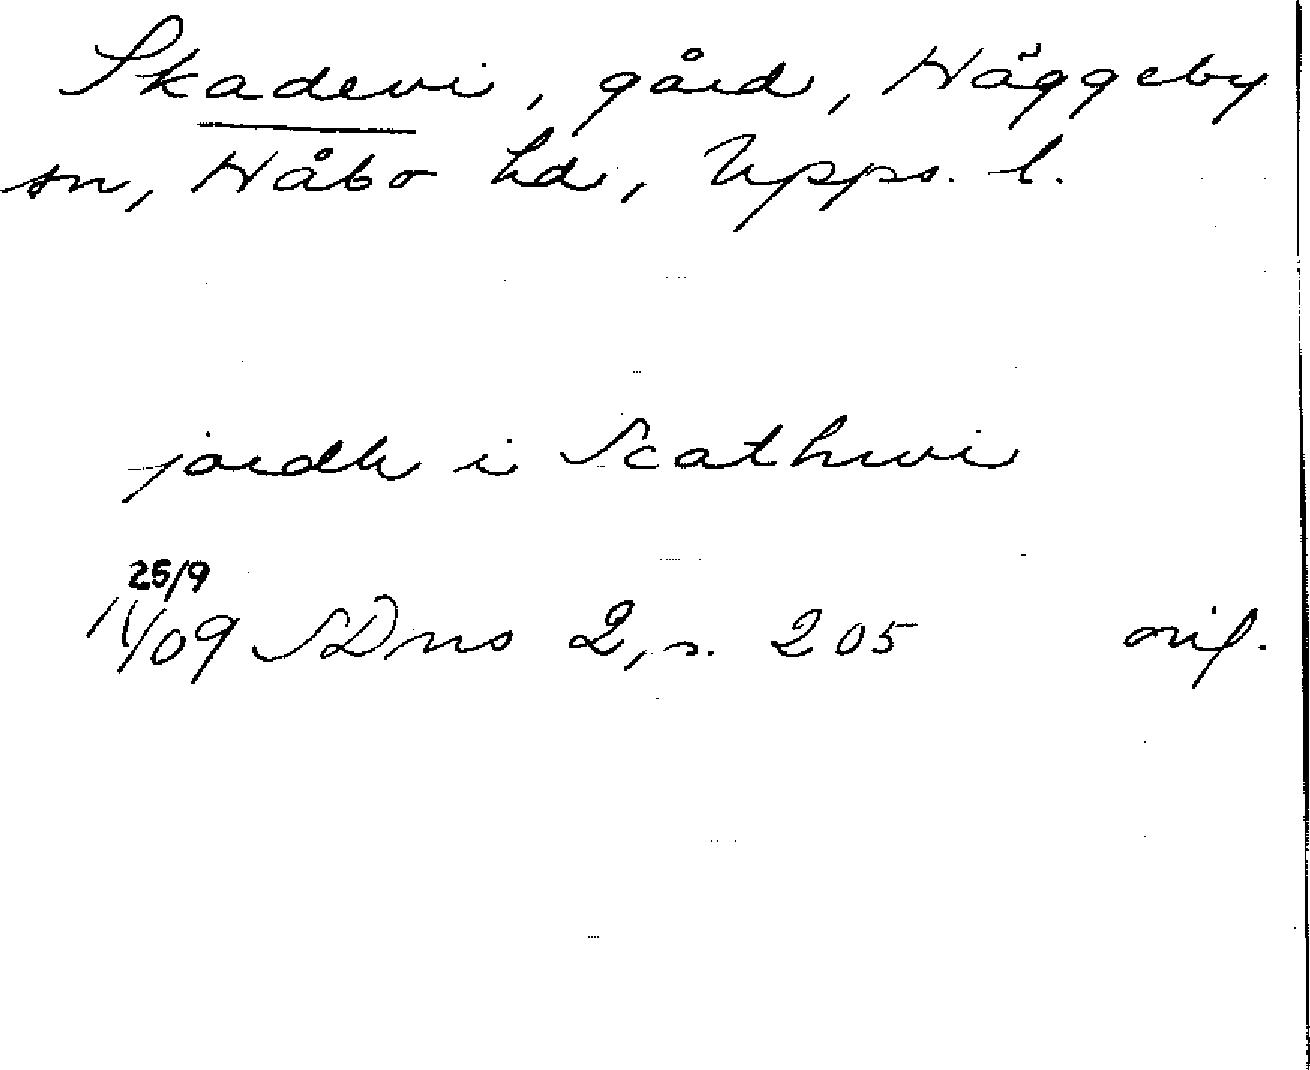 Skadevi, gård, Häggeby
sn, Håbo hd, Upps. l.
jordh i Scathwi
25/9
1409 SDns 2, s. 205 orig.